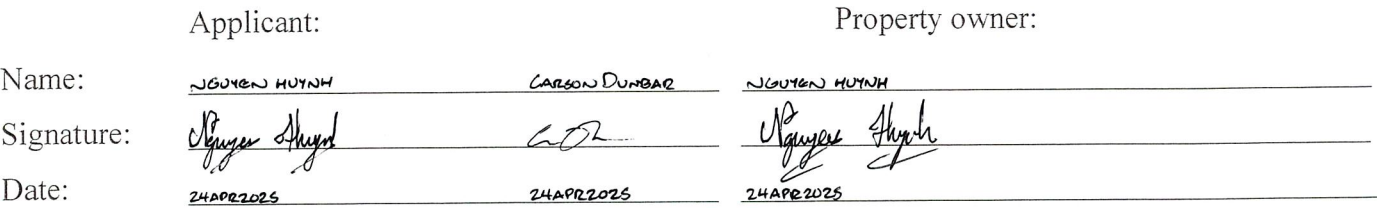 Applicant: Property owner:
Name: NGUYEN HUYNH CARSON DUNBAR NGUYEN HUYNH
Signature: Nguyen Huynh Nguyen Huynh
Date: 24APR2025 24APR2025 24APR2025